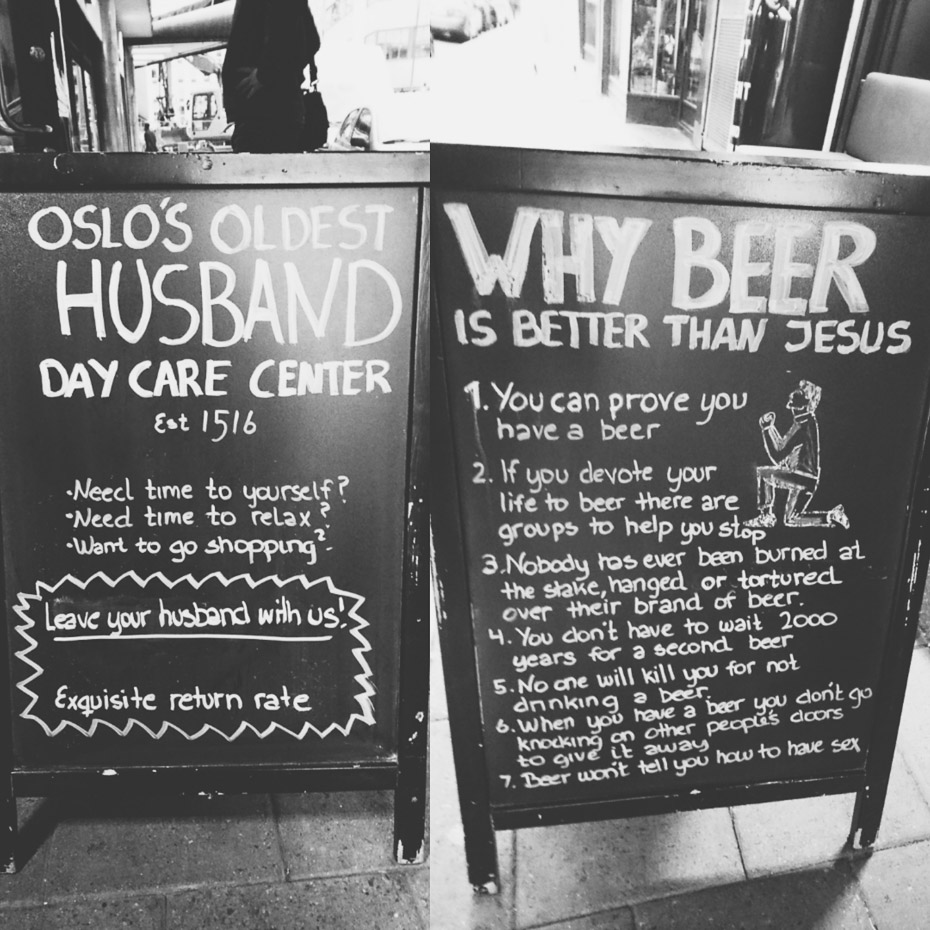 OSLO'S OLDEST
HUSBAND
DAY CARE CENTER
Est 1516
•Need time to yourself?
•Need time to relax?
•Want to go shopping?
Leave your husband with us!
Exquisite return rate
WHY BEER
IS BETTER THAN JESUS
1. You can prove you
have a beer
2. If you devote your
life to beer there are
groups to help you stop
3. Nobody has ever been burned at
the stake, hanged or tortured
over their brand of beer.
4. You don't have to wait 2000
years for a second beer
5. No one will kill you for not
drinking a beer.
6. When you have a beer you don't go
knocking on other people's doors
to give it away
7. Beer won't tell you how to have sex